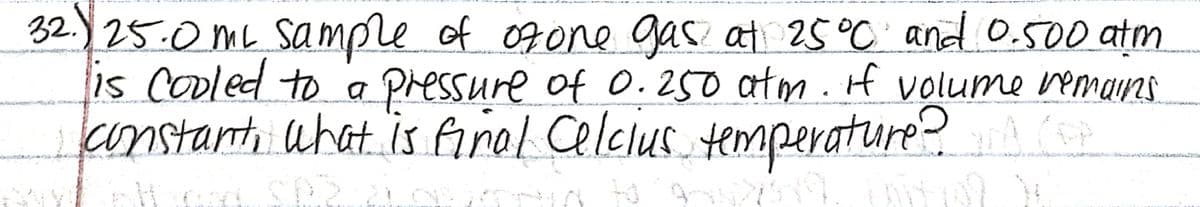 32.) 25.0 mL sample of ozone gas at 25°C and 0.500 atm
is cooled to a pressure of 0.250 atm. if volume remains
constant, what is final Celcius temperature?